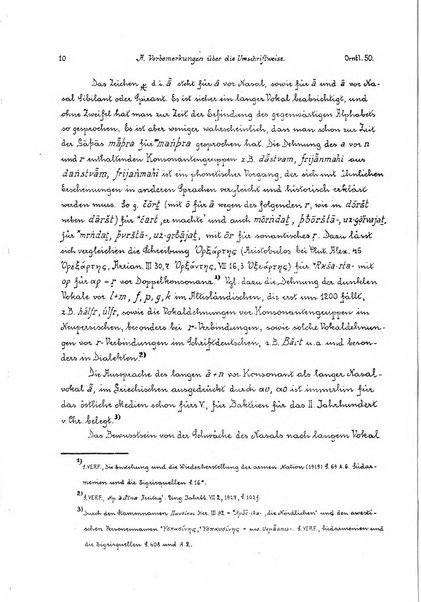 10 A. Vorbemerkungen über die Umschriftweise. Orntl. 50.
Das Zeichen d. i. ā̃ steht für ā vor Nasal, sowie für ā und a vor Na-
sal Sibilant oder Spirant. Es ist sicher ein langer Vokal beabsichtigt, und
ohne Zweifel hat man zur Zeit der Erfindung des gegenwärtigen Alphabets
so gesprochen. Es ist aber weniger wahrscheinlich, dass man schon zur Zeit
der für gesprochen hat. Die Dehnung des a vor n
und r enthaltenden Konsonantengruppen z.B. dāstvam, frijānmahi aus
danstvām, frijanmahi ist ein phonetischer Vorgang, der sich mit ähnlichen
Erscheinungen in anderen Sprachen vergleicht und historisch erklärt
werden muss. So g. cōrt (mit ō für ā wegen des folgenden r, wie in dōršt
neben dāršt) für *čart „er machte" und auch
für sonantisches r. Dazu lässt
sich vergleichen die Schreibung Ὀρξάρτης (Aristobulos bei Plut. Alex. 45
Arrian. III 30,7 VII 16,3 für mit
ορ für αρ = r vor Doppelkonsonanz.1) Vgl. dazu die Dehnung der dunklen
Vokale vor l + m, f, p, g, k im Altisländischen, die erst um 1200 fällt,
z.B. hálfr, úlfr, sowie die Vokaldehnungen vor Konsonantengruppen im
Neupersischen, besonders bei r-Verbindungen, sowie solche Vokaldehnun-
gen vor r-Verbindungen im Schriftdeutschen, z.B. Bārt u.a. und beson-
ders in Dialekten.2)
Die Aussprache des langen ā + n vor Konsonant als langer Nasal-
vokal ā̃, im Griechischen ausgedrückt durch αν, αο ist immerhin für
das östliche Medien schon fürs V., für Baktrien für das II. Jahrhundert
v. Chr. belegt.3)
Das Bewusstsein von der Schwäche des Nasals nach langem Vokal
1) S. VERF., Die Entstehung und die Wiederherstellung der armen. Nation (1919) S. 69 A.6. Südar-
menien und die Tigrisquellen S. 16*.
2) S. VERF., Ung. Jahrbb. VII 2, 1927, S. 102f.
3) Durch den Kammnamen „die Nördlichen" und den awesti-
schen Personennamen S. VERF., Südarmenien und die
Tigrisquellen S. 408 und A. 2.